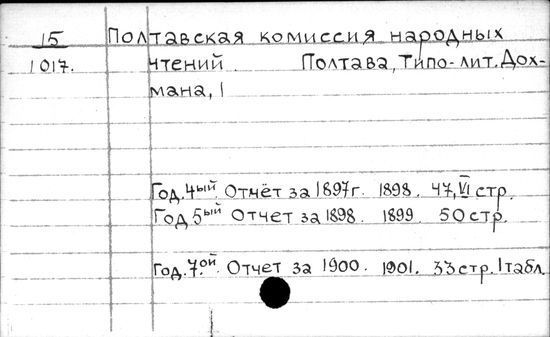 15 Полтавская комиссия народных
1017. чтений Полтава, Типо-лит. Дох-
мана, 1
Год. 4ый Отчёт за 1897г. 1898. 47, VI стр.
Год 5ый Отчет за 1898. 1899. 50 стр.
Год. 7.ой. Отчет за 1900. 1901. 33 стр. 1 табл.